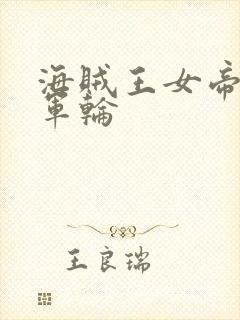 海賊王女帝
軍輪
王良瑞